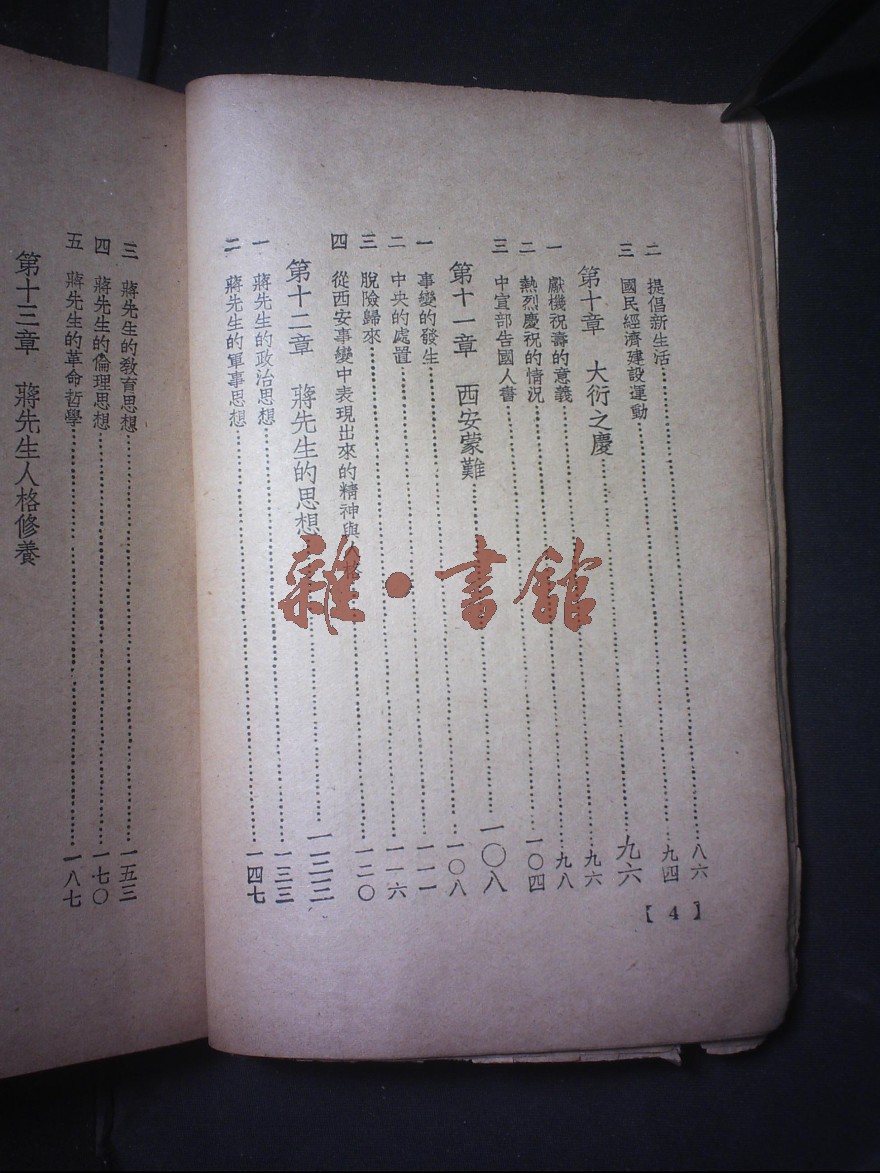 二 提倡新生活……八六
三 國民經濟建設運動……九四
第十章 大衍之慶……九六
一 獻機祝壽的意義……九六
二 熱烈慶祝的情況……九八
三 中宣部告國人書……一〇四
第十一章 西安蒙難……一〇八
一 事變的發生……一〇八
二 中央的處置……一一一
三 脫險歸來……一一六
四 從西安事變中表現出來的精神與……一二〇
第十二章 蔣先生的思想……一三三
一 蔣先生的政治思想……一三三
二 蔣先生的軍事思想……一四七
【4】
三 蔣先生的教育思想……一五三
四 蔣先生的倫理思想……一七〇
五 蔣先生的革命哲學……一八七
第十三章 蔣先生人格修養
雜·書館